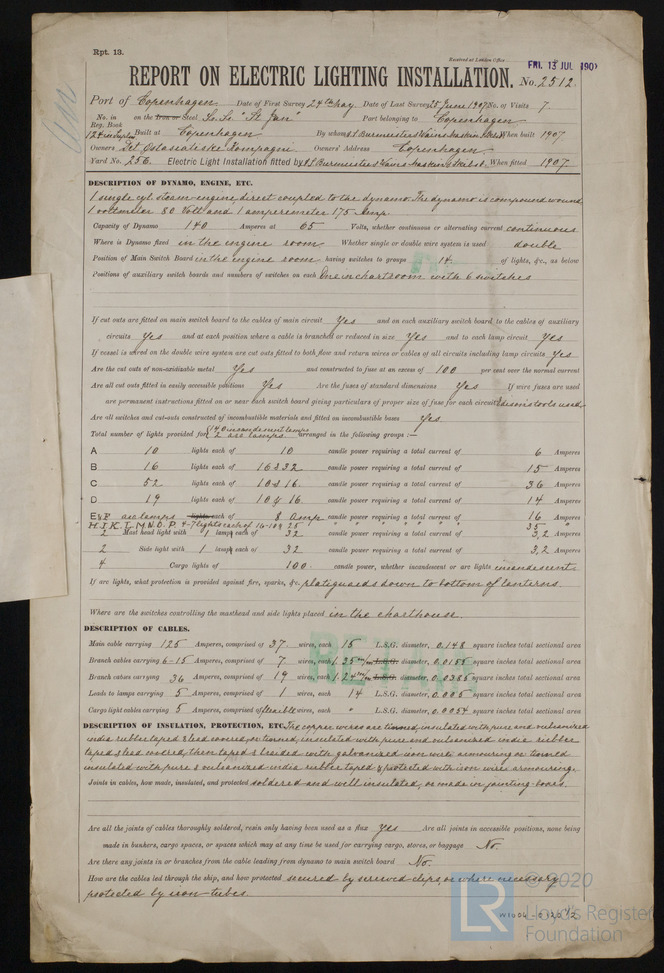 Rpt. 13.
Received at London Office
FRI. 13 JUL 190
REPORT ON ELECTRIC LIGHTING INSTALLATION. No. 2512.
Port of Copenhagen Date of First Survey 24th May Date of Last Survey 25 June 1907 No. of Visits 7.
No. in Reg. Book on the Iron or Steel S.S. "St Jan" Port belonging to Copenhagen
Built at Copenhagen By whom When built 1907.
Owners Det Östasiatiske Kompagni Owners' Address Copenhagen
Yard No. 256. Electric Light Installation fitted by When fitted 1907
DESCRIPTION OF DYNAMO, ENGINE, ETC.
1 single cyl. steam-engine, direct coupled to the dynamo. The dynamo is compound wound
1 voltmeter 80 Volt and 1 amperemeter 175 Amp.
Capacity of Dynamo 140 Amperes at 65 Volts, whether continuous or alternating current continuous
Where is Dynamo fixed in the engine room Whether single or double wire system is used double
Position of Main Switch Board in the engine room having switches to groups 14 of lights, &c., as below
Positions of auxiliary switch boards and numbers of switches on each One in chartroom with 6 switches
If cut outs are fitted on main switch board to the cables of main circuit Yes and on each auxiliary switch board to the cables of auxiliary
circuits Yes and at each position where a cable is branched or reduced in size Yes and to each lamp circuit Yes
If vessel is wired on the double wire system are cut outs fitted to both flow and return wires or cables of all circuits including lamp circuits Yes
Are the cut outs of non-oxidizable metal Yes and constructed to fuse at an excess of 100 per cent over the normal current
Are all cut outs fitted in easily accessible positions Yes Are the fuses of standard dimensions Yes If wire fuses are used
are permanent instructions fitted on or near each switch board giving particulars of proper size of fuse for each circuit
Are all switches and cut-outs constructed of incombustible materials and fitted on incombustible bases Yes
Total number of lights provided for 140 incandescent lamps 2 arc lamps arranged in the following groups :—
A 10 lights each of 10 candle power requiring a total current of 6 Amperes
B 16 lights each of 16 & 32 candle power requiring a total current of 15 Amperes
C 52 lights each of 10 & 16 candle power requiring a total current of 36 Amperes
D 19 lights each of 10 & 16 candle power requiring a total current of 14 Amperes
E & F arc lamps lights each of 8 Amp candle power requiring a total current of 16 Amperes
H.I.K.L.M.N.O.P. 4-7 lights each of 16-10 & 25 " " " " " " 35 "
2 Mast head light with 1 lamp each of 32 candle power requiring a total current of 3,2 Amperes
2 Side light with 1 lamp each of 32 candle power requiring a total current of 3,2 Amperes
4 Cargo lights of 100 candle power, whether incandescent or arc lights incandescent
If arc lights, what protection is provided against fire, sparks, &c. plateguards down to bottom of lanterns.
Where are the switches controlling the masthead and side lights placed in the charthouse.
DESCRIPTION OF CABLES.
Main cable carrying 125 Amperes, comprised of 37 wires, each 15 L.S.G. diameter, 0.148 square inches total sectional area
Branch cables carrying 6-15 Amperes, comprised of 7 wires, each 1.35 m/m L.S.G. diameter, 0.0155 square inches total sectional area
Branch cables carrying 36 Amperes, comprised of 19 wires, each 1.29 m/m L.S.G. diameter, 0.0385 square inches total sectional area
Leads to lamps carrying 5 Amperes, comprised of 1 wires, each 14 L.S.G. diameter, 0.005 square inches total sectional area
Cargo light cables carrying 5 Amperes, comprised of flexible wires, each " L.S.G. diameter, 0.0054 square inches total sectional area
DESCRIPTION OF INSULATION, PROTECTION, ETC. The copper wires are tinned, insulated with pure and vulcanized
india rubber taped & lead covered, or tinned, insulated with pure and vulcanized india rubber
taped & lead covered, then taped & braided with galvanized iron wire armouring or tinned
insulated with pure & vulcanized india rubber taped & protected with iron wire armouring.
Joints in cables, how made, insulated, and protected soldered and well insulated, or made in jointing boxes.
Are all the joints of cables thoroughly soldered, resin only having been used as a flux Yes Are all joints in accessible positions, none being
made in bunkers, cargo spaces, or spaces which may at any time be used for carrying cargo, stores, or baggage No.
Are there any joints in or branches from the cable leading from dynamo to main switch board No.
How are the cables led through the ship, and how protected secured by screwed clips, or where necessary
protected by iron tubes.
© 2020
LR Lloyd's Register
Foundation